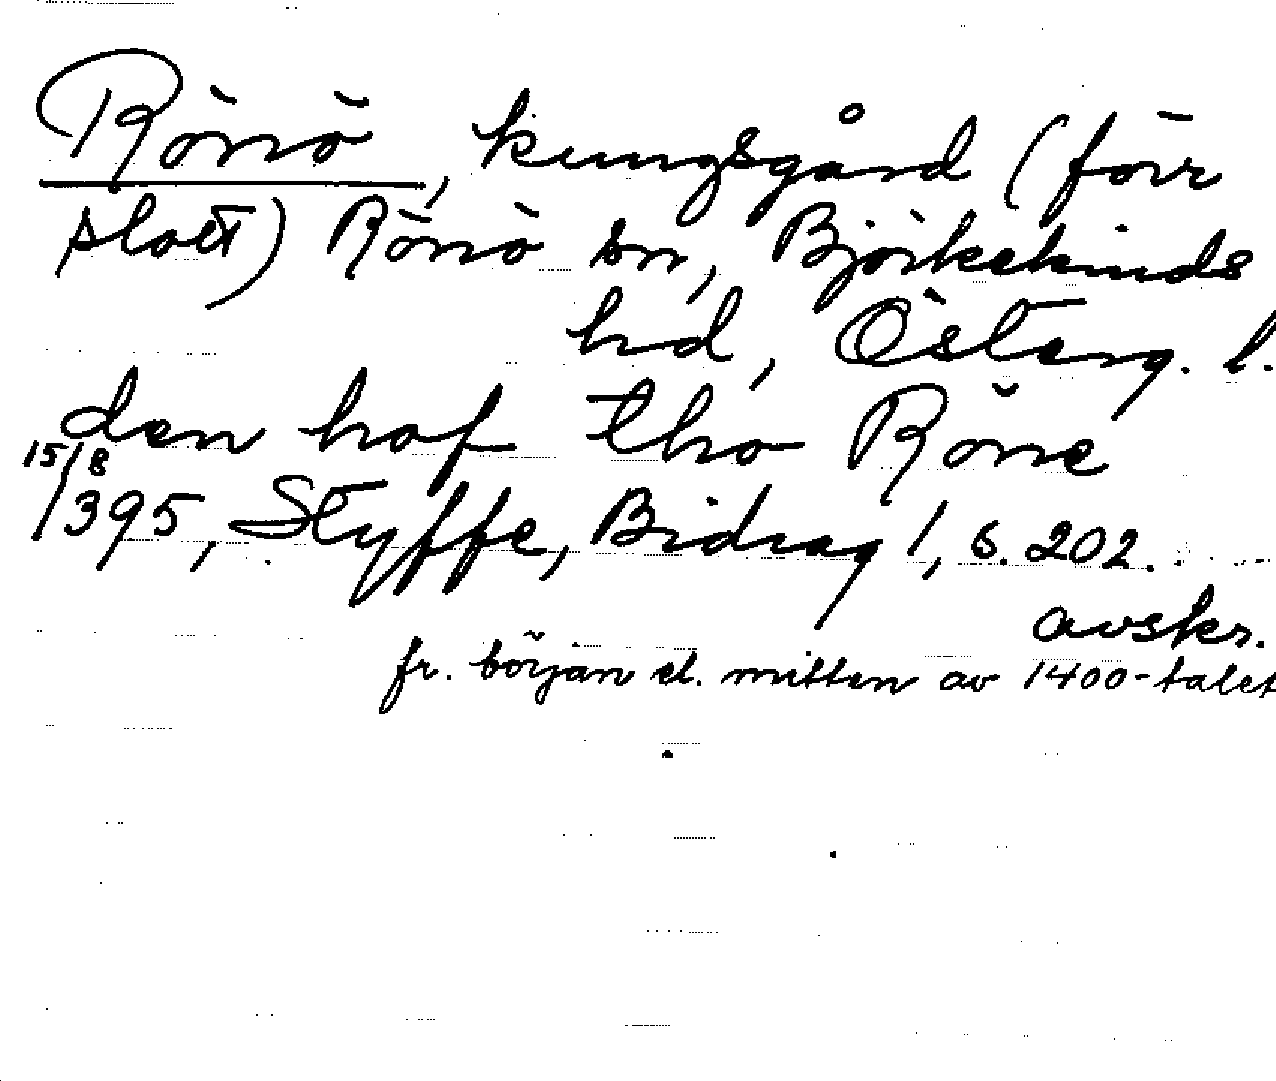 Rönö, kungsgård (förr
slott) Rönö sn, Björkekinds
hd, Österg. l.
den hof tho Röne
15/8
1395, Styffe, Bidrag 1, s. 202.
avskr.
fr. början el. mitten av 1400-talet